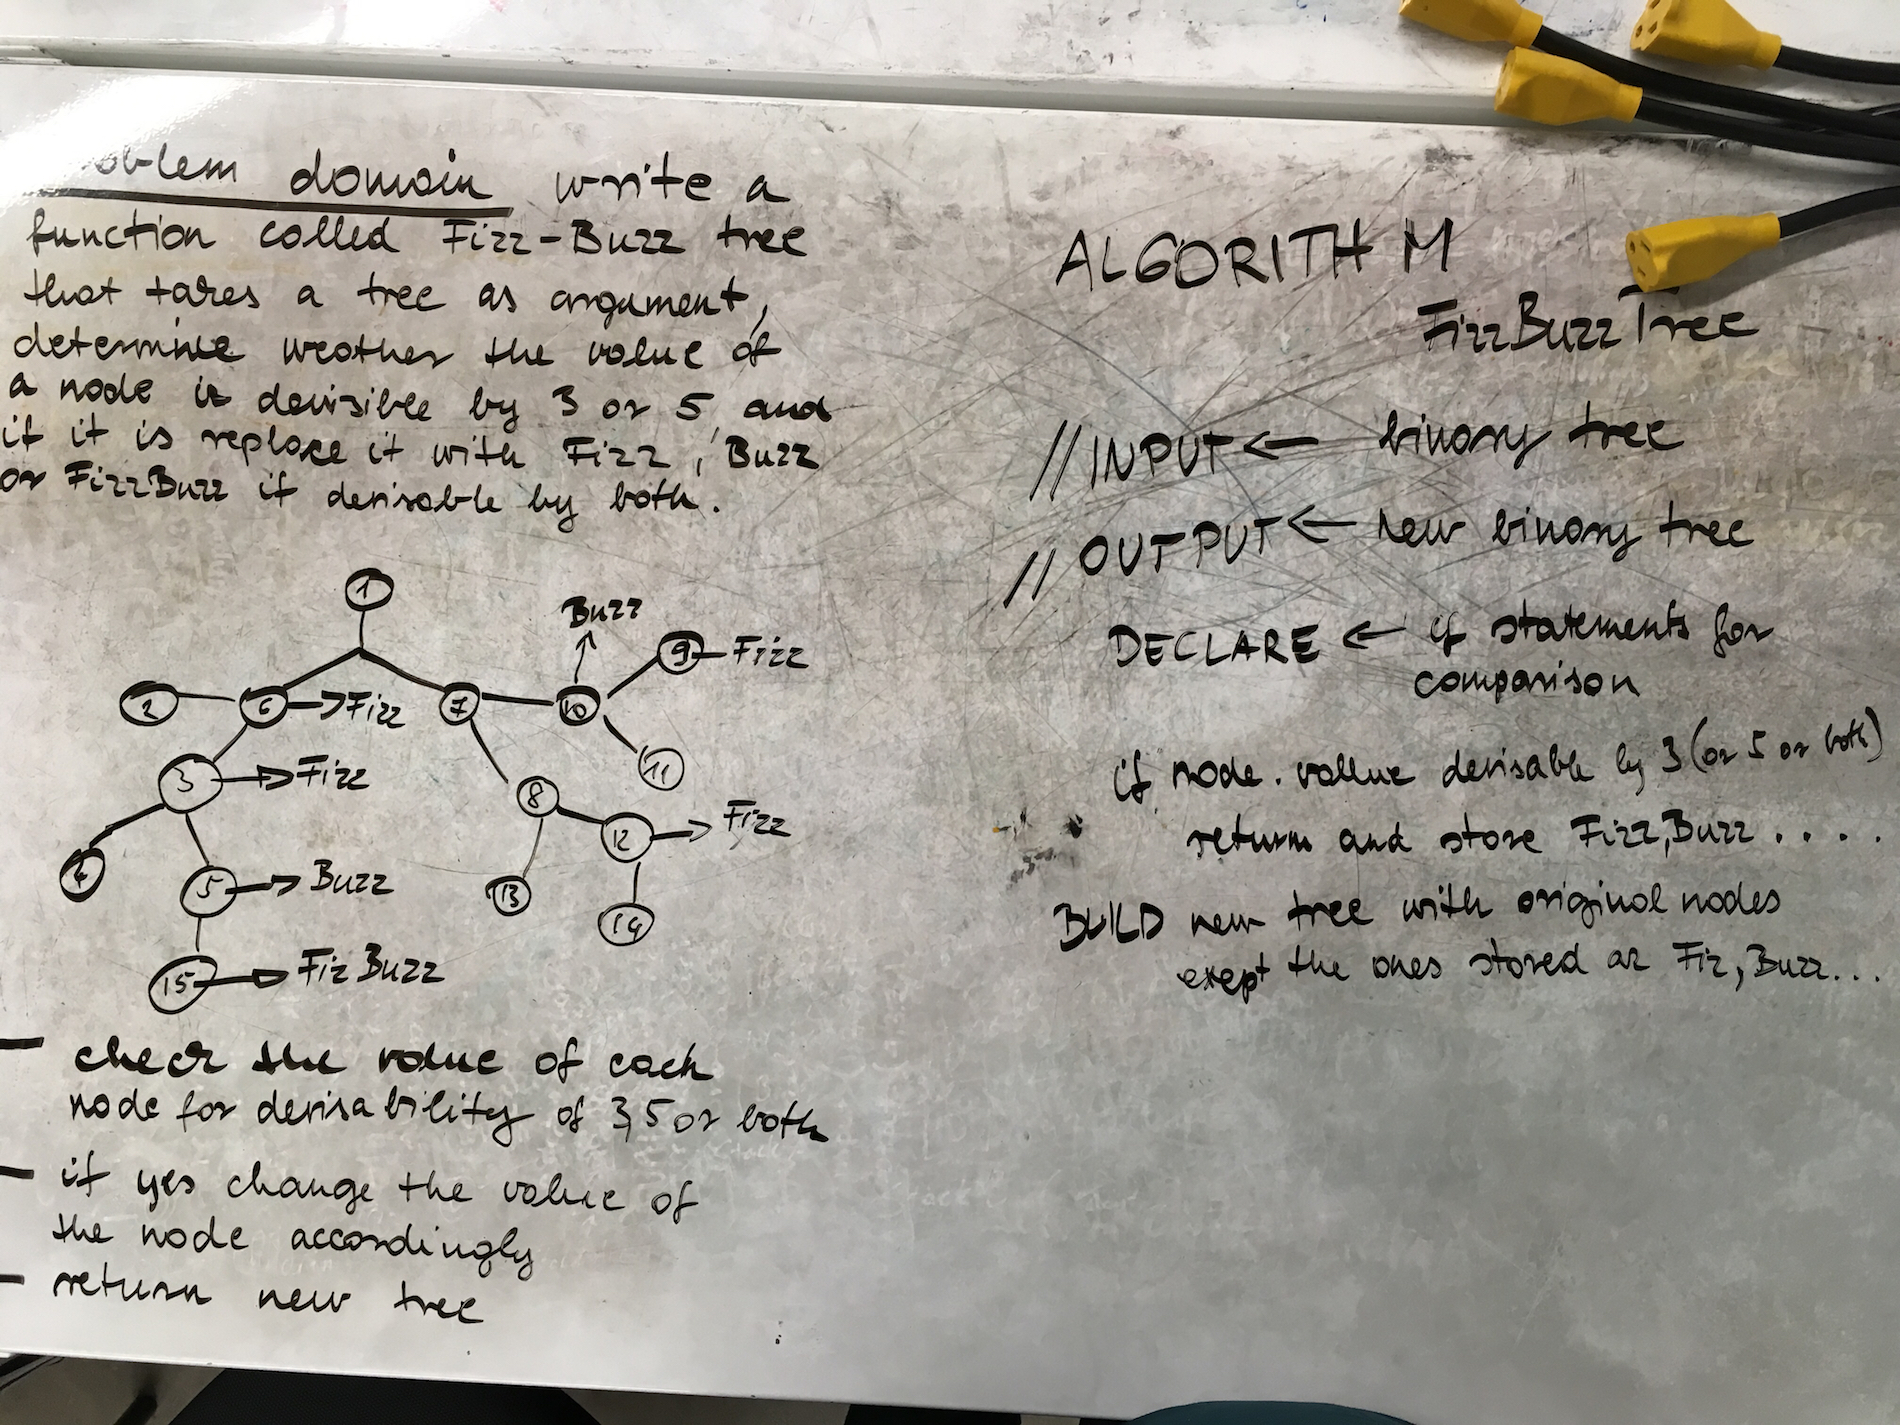 oblem domain write a
function called Fizz-Buzz tree
that takes a tree as argument,
determine weather the value of
a node is devisible by 3 or 5, and
if it is replace it with Fizz, Buzz
or FizzBuzz if devisable by both.
1
Buzz
9 Fizz
2 6 Fizz 7 10
3 Fizz 11
8
12 Fizz
4
5 Buzz 13
14
15 FizBuzz
- check the value of each
node for devisability of 3,5 or both
- if yes change the value of
the node accordingly
- return new tree
ALGORITHM
FizzBuzzTree
// INPUT ← binary tree
// OUTPUT ← new binary tree
DECLARE ← if statements for
comparison
if node.vallue devisable by 3 (or 5 or both)
return and store Fizz, Buzz ....
BUILD new tree with original nodes
exept the ones stored as Fiz, Buzz...